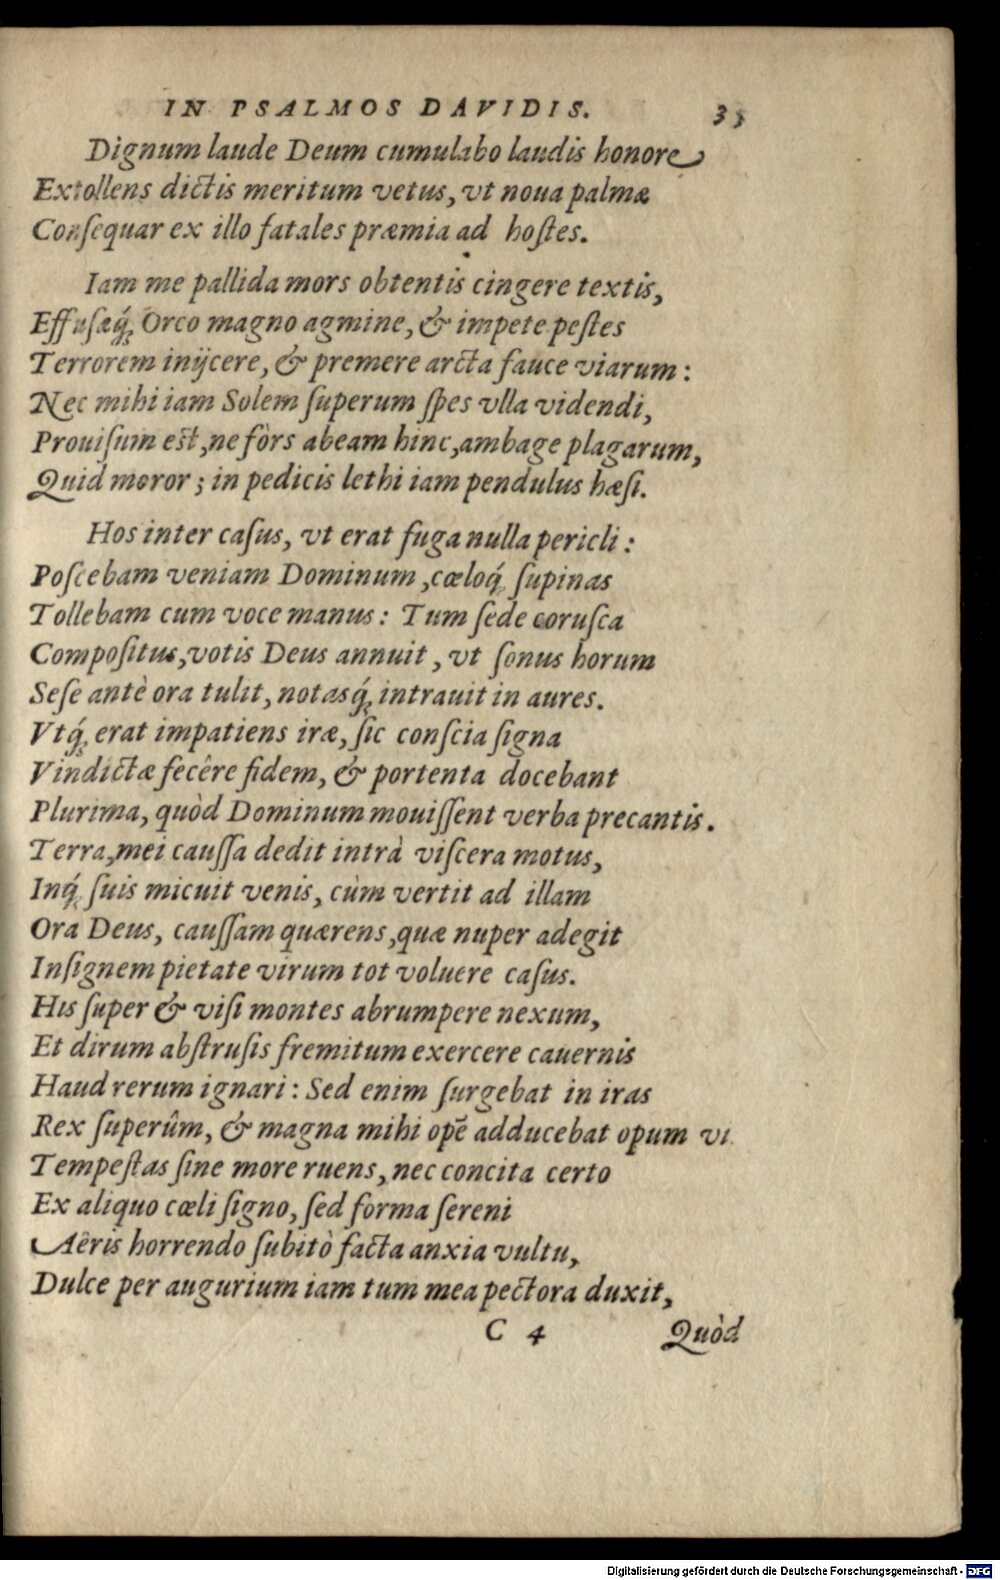 IN PSALMOS DAVIDIS. 35
Dignum laude Deum cumulabo laudis honore
Extollens dictis meritum vetus, vt noua palmæ
Conſequar ex illo fatales præmia ad hoſtes.
Iam me pallida mors obtentis cingere textis,
Effuſaq́; Orco magno agmine, & impete peſtes
Terrorem inijcere, & premere arcta fauce viarum:
Nec mihi iam Solem ſuperum ſpes vlla videndi,
Prouiſum est, ne fòrs abeam hinc, ambage plagarum,
Quid moror; in pedicis lethi iam pendulus hæſi.
Hos inter caſus, vt erat fuga nulla pericli:
Poſcebam veniam Dominum, cœloq́; ſupinas
Tollebam cum voce manus: Tum ſede coruſca
Compoſitus, votis Deus annuit, vt ſonus horum
Seſe antè ora tulit, notasq́; intrauit in aures.
Vtq́; erat impatiens iræ, ſic conſcia ſigna
Vindictæ fecêre fidem, & portenta docebant
Plurima, quòd Dominum mouiſſent verba precantis.
Terra, mei cauſſa dedit intrà viſcera motus,
Inq́; ſuis micuit venis, cùm vertit ad illam
Ora Deus, cauſſam quærens, quæ nuper adegit
Inſignem pietate virum tot voluere caſus.
His ſuper & viſi montes abrumpere nexum,
Et dirum abſtruſis fremitum exercere cauernis
Haud rerum ignari: Sed enim ſurgebat in iras
Rex ſuperûm, & magna mihi opẽ adducebat opum vi
Tempeſtas ſine more ruens, nec concita certo
Ex aliquo cœli ſigno, ſed forma ſereni
Aëris horrendo ſubitò facta anxia vultu,
Dulce per augurium iam tum mea pectora duxit,
C 4 Quòd
Digitalisierung gefördert durch die Deutsche Forschungsgemeinschaft - DFG